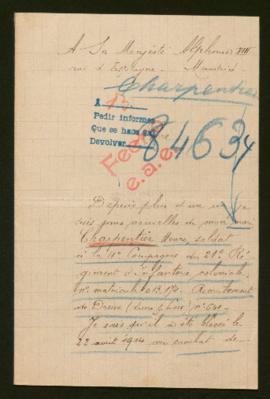 A Sa Majesté Alphonse XIII
roi d'Espagne. Madrid
Charpentier
A
Pedir informes
Que se hace así
Devolver
8463
Depuis plus d'un an je
suis sans nouvelles de mon mari
Charpentier soldat
à la 11e Compagnie du 21e Ré
giment d'Infanterie coloniale,
n° matricule Recrutement
de Dreux n°
Je sais qu'il a été blessé le
22 août 1914 au combat de